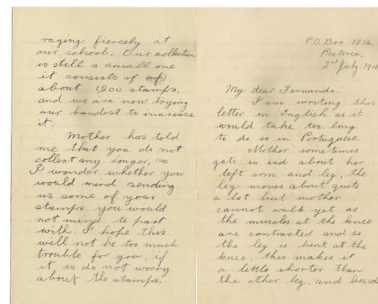 raging fiercely at
our school. Our collection
is still a small one
it consists of
about 1,200 stamps,
and we are now trying
our hardest to increase
it.
Mother has told
me that you do not
collect any longer, so
I wonder whether you
would mind sending
us some of your
stamps you would
not mind to part
with. I hope this
will not be too much
trouble for you, if
it is do not worry
about the stamps.
P.O. Box 1214,
Pretoria,
2nd July, 191
My dear Fernando.
I am writing this
letter in English as it
would take too long
to do so in Portuguese.
Mother sometimes
gets is sad about her
left arm and leg, the
leg moves about quite
a lot but mother
cannot walk yet as
the muscles at the knee
are contracted and so
the leg is bent at the
knee, this makes it
a little shorter than
the other leg, and